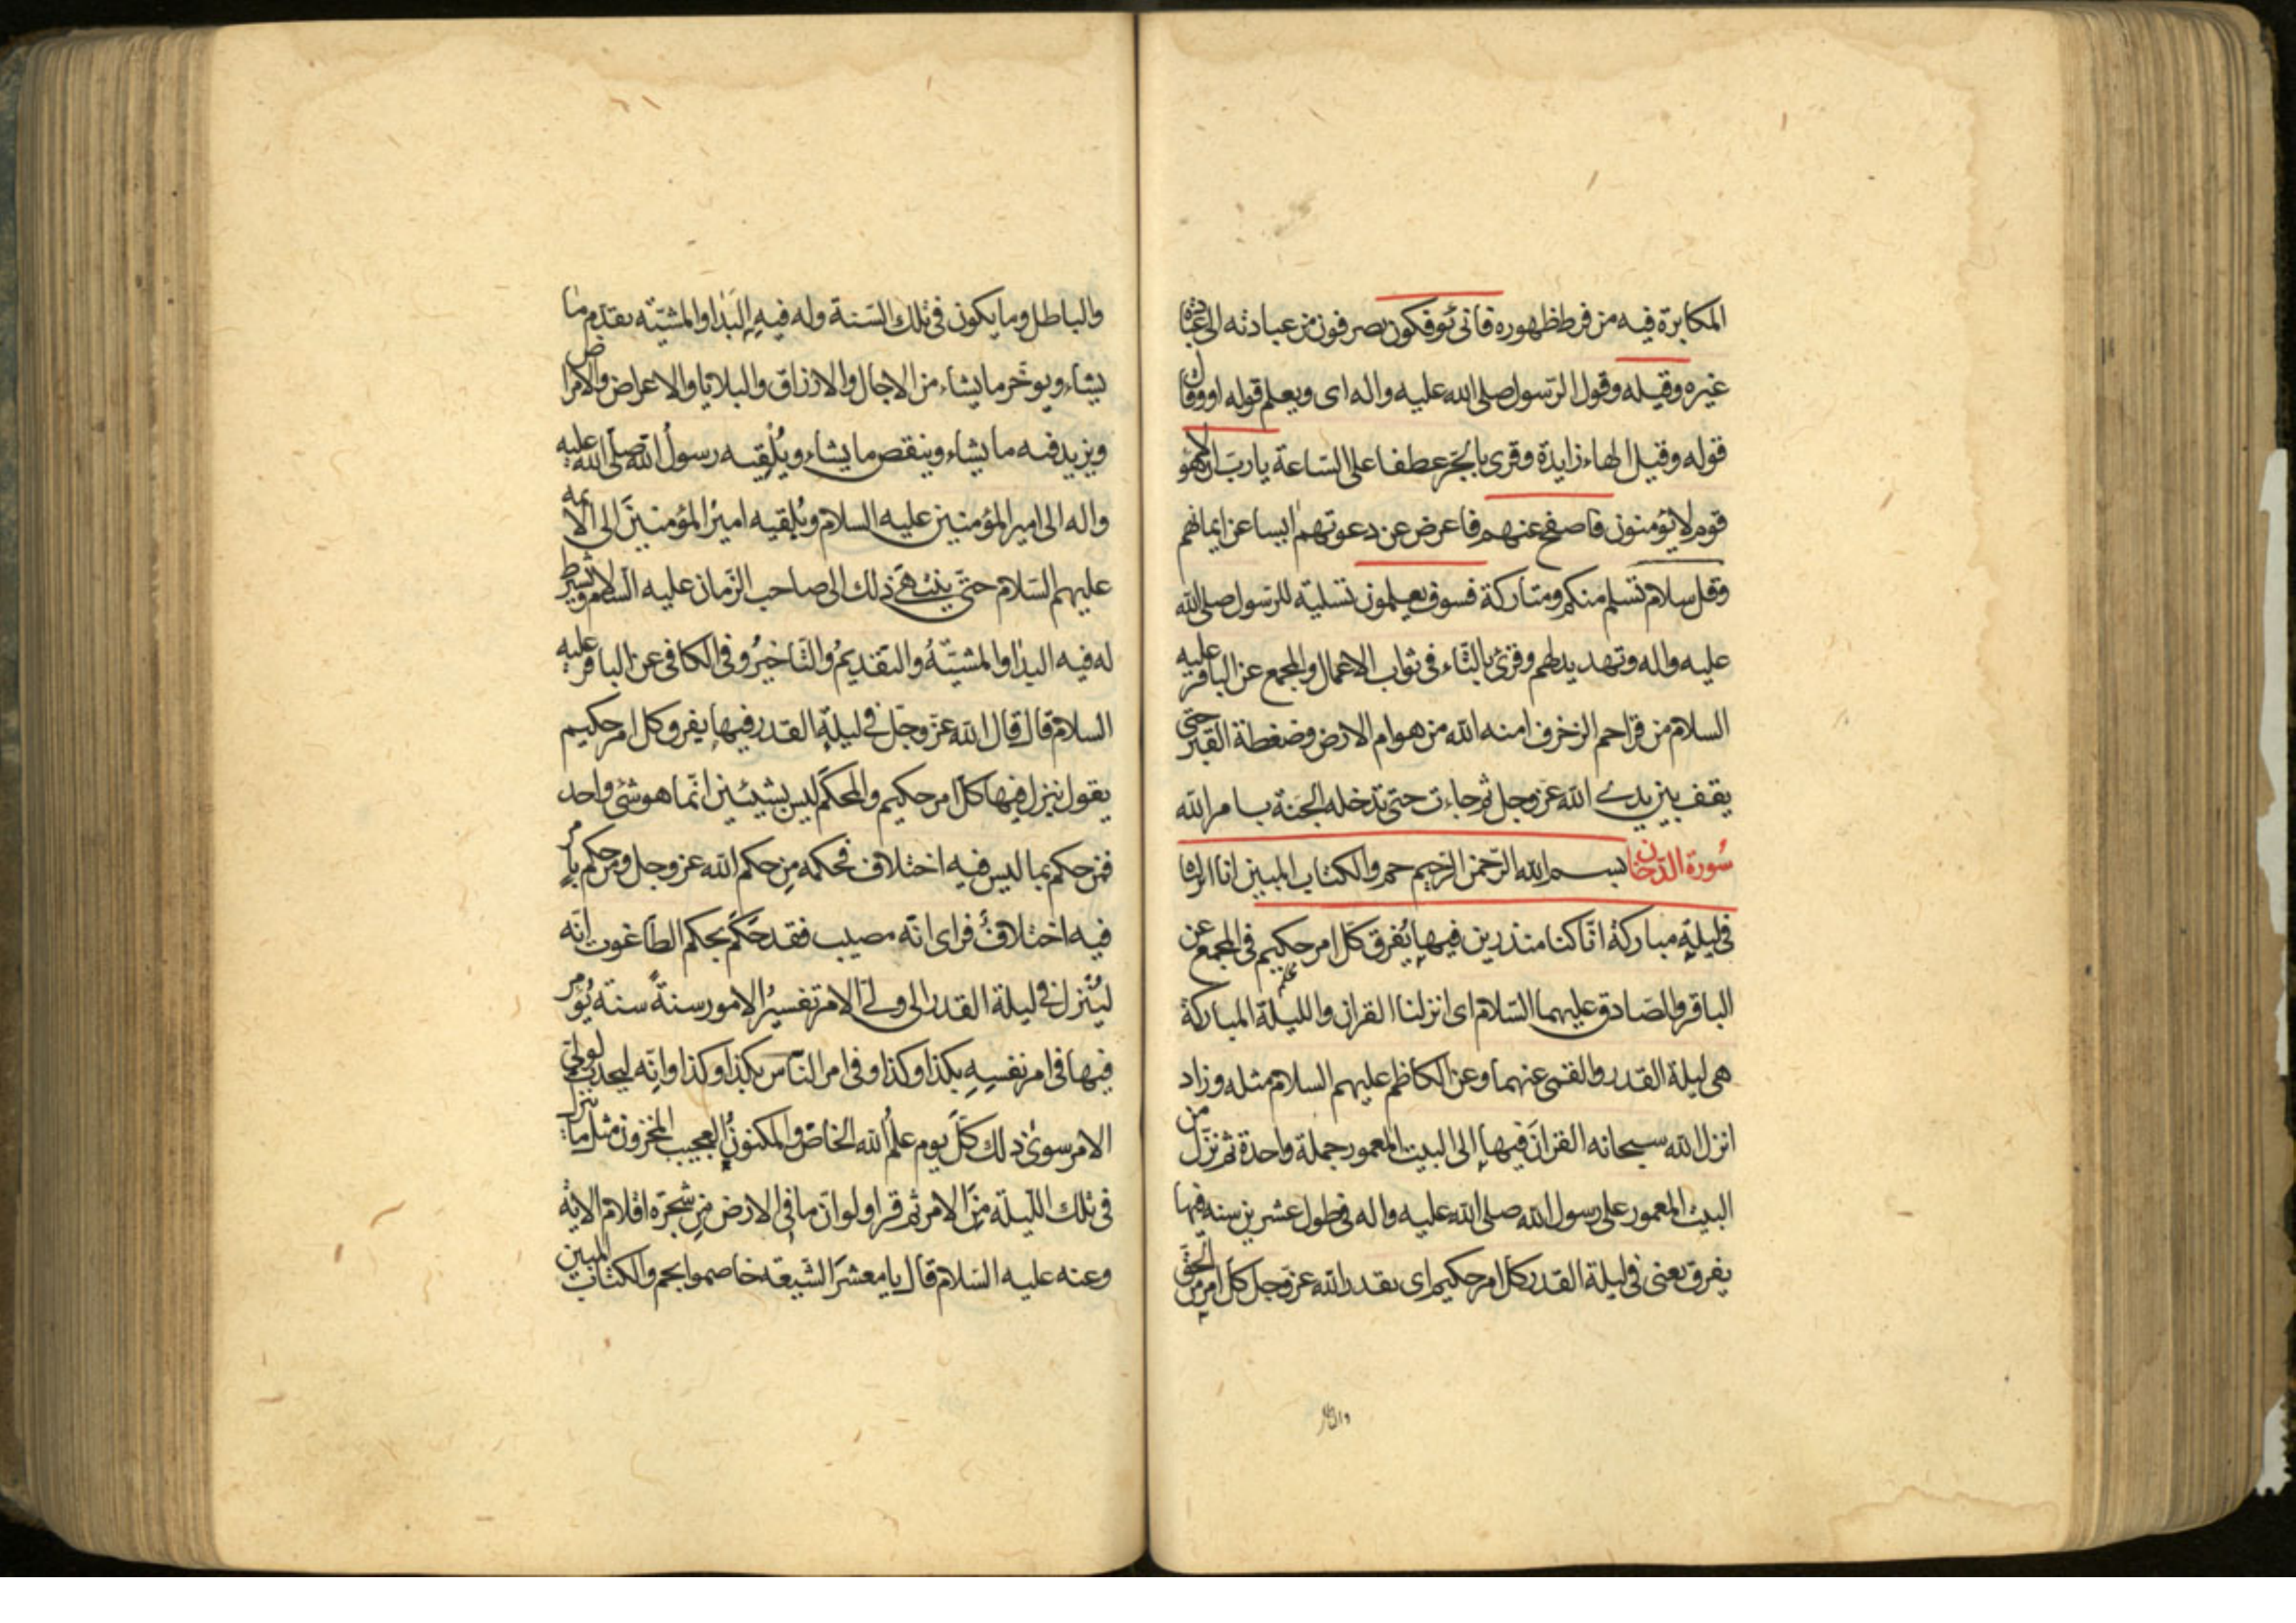 المكابرة فيه من فرط ظهوره فانى يؤفكون يصرفون من عبادته الى عبادة
غيره وقيله وقول الرسول صلى الله عليه واله اى ويعلم قوله او وقال
قوله وقيل الهاء زايدة وقرى بالجر عطفا على الساعة يا رب ان هؤلاء
قوم لا يؤمنون فاصفح عنهم فاعرض عن دعوتهم ايسا عن ايمانهم
وقل سلام تسلم منكم ومتاركة فسوف يعلمون تسلية للرسول صلى الله
عليه واله وتهديد لهم وقرئ بالتاء فى ثواب الاعمال والمجمع عن الباقر عليه
السلام من قرا حم الزخرف امنه الله من هوام الارض وضغطة القبر حتى
يقف بين يدى الله عز وجل ثم جاءت حتى تدخله الجنة بامر الله
سورة الدخان بسم الله الرحمن الرحيم حم والكتاب المبين انا انزلناه
فى ليلة مباركة انا كنا منذرين فيها يفرق كل امر حكيم فى المجمع عن
الباقر والصادق عليهما السلام اى انزلنا القران والليلة المباركة
هى ليلة القدر والقمى عنهما وعن الكاظم عليهم السلام مثله وزاد
انزل الله سبحانه القران فيها الى البيت المعمور جملة واحدة ثم نزل من
البيت المعمور على رسول الله صلى الله عليه واله فى طول عشرين سنه فيها
يفرق يعنى فى ليلة القدر كل امر حكيم اى يقدر الله عز وجل كل امر من الحق
والباطل
والباطل وما يكون فى تلك السنة وله فيه البدا والمشيّه يقدّم ما
يشاء ويوخّر ما يشاء من الاجال والارزاق والبلايا والاعراض والامراض
ويزيد فيه ما يشاء وينقص ما يشاء ويُلقيه رسولُ الله صلى الله عليه
واله الى امير المؤمنين عليه السلام ويُلقيه اميرُ المؤمنينَ الى الائمه
عليهم السلام حتى ينتهىَ ذلك الى صاحب الزمان عليه السلام ويشترط
له فيه البدا والمشيّةُ والتقديمُ والتاخيرُ وفى الكافى عن الباقر عليه
السلام قال قال الله عز وجل فى ليلة القدر فيها يفرق كل امر حكيم
يقول ينزل فيها كل امر حكيم والمحكم ليس بشيئين انما هو شئ واحد
فمن حكم بما ليس فيه اختلاف فحكمه من حكم الله عز وجل ومن حكم بامر
فيه اختلافٌ فراى انّه مصيب فقد حَكَم بحكم الطاغوت انّه
ليُنزل فى ليلة القدر الى ولىّ الامر تفسيرُ الامور سنةً سنة يُؤمر
فيها فى امر نفسهِ بكذا وكذا وفى امر الناس بكذا وكذا وانه ليحدث لولىّ
الامر سوى ذلك كلّ يوم علمُ الله الخاص والمكنونُ العجيب المخزون مثل ما ينزل
فى تلك الليلة من الامر ثم قرا ولو ان ما فى الارض من شجرة اقلام الاية
وعنه عليه السلام قال يا معشر الشيعه خاصموا بحم والكتاب المبين